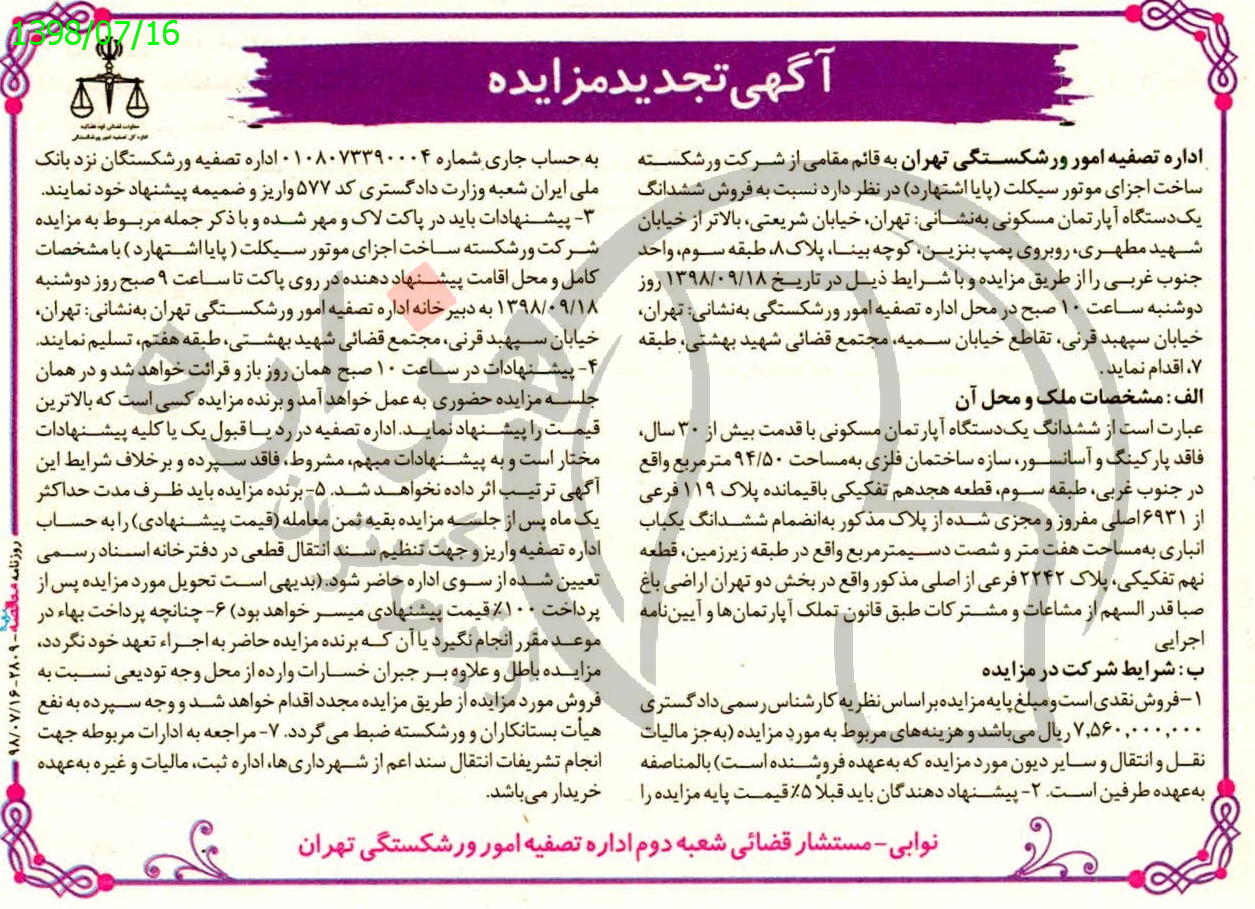 1398/07/16
آگهی تجدید مزایده
معاونت قضائی قوه قضائیه
اداره کل تصفیه امور ورشکستگی
اداره تصفیه امور ورشکستگی تهران به قائم مقامی از شرکت ورشکسته
ساخت اجزای موتور سیکلت (پایا اشتهارد) در نظر دارد نسبت به فروش ششدانگ
یک‌دستگاه آپارتمان مسکونی به‌نشانی: تهران، خیابان شریعتی، بالاتر از خیابان
شهید مطهری، روبروی پمپ بنزین، کوچه بینا، پلاک ۸، طبقه سوم، واحد
جنوب غربی را از طریق مزایده و با شرایط ذیل در تاریخ ۱۳۹۸/۰۹/۱۸ روز
دوشنبه ساعت ۱۰ صبح در محل اداره تصفیه امور ورشکستگی به‌نشانی: تهران،
خیابان سپهبد قرنی، تقاطع خیابان سمیه، مجتمع قضائی شهید بهشتی، طبقه
۷، اقدام نماید.
الف: مشخصات ملک و محل آن
عبارت است از ششدانگ یک‌دستگاه آپارتمان مسکونی با قدمت بیش از ۳۰ سال،
فاقد پارکینگ و آسانسور، سازه ساختمان فلزی به‌مساحت ۹۴/۵۰ مترمربع واقع
در جنوب غربی، طبقه سوم، قطعه هجدهم تفکیکی باقیمانده پلاک ۱۱۹ فرعی
از ۶۹۳۱ اصلی مفروز و مجزی شده از پلاک مذکور به‌انضمام ششدانگ یکباب
انباری به‌مساحت هفت متر و شصت دسیمترمربع واقع در طبقه زیرزمین، قطعه
نهم تفکیکی، پلاک ۲۲۴۲ فرعی از اصلی مذکور واقع در بخش دو تهران اراضی باغ
صبا قدر السهم از مشاعات و مشترکات طبق قانون تملک آپارتمان‌ها و آیین‌نامه
اجرایی
ب: شرایط شرکت در مزایده
۱- فروش نقدی است و مبلغ پایه مزایده براساس نظریه کارشناس رسمی دادگستری
۷,۵۶۰,۰۰۰,۰۰۰ ریال می‌باشد و هزینه‌های مربوط به مورد مزایده (به‌جز مالیات
نقل و انتقال و سایر دیون مورد مزایده که به‌عهده فروشنده است) بالمناصفه
به‌عهده طرفین است. ۲- پیشنهاد دهندگان باید قبلاً ۵٪ قیمت پایه مزایده را
به حساب جاری شماره ۰۱۰۸۰۷۳۳۹۰۰۰۴ اداره تصفیه ورشکستگان نزد بانک
ملی ایران شعبه وزارت دادگستری کد ۵۷۷ واریز و ضمیمه پیشنهاد خود نمایند.
۳- پیشنهادات باید در پاکت لاک و مهر شده و با ذکر جمله مربوط به مزایده
شرکت ورشکسته ساخت اجزای موتور سیکلت (پایا اشتهارد) با مشخصات
کامل و محل اقامت پیشنهاد دهنده در روی پاکت تا ساعت ۹ صبح روز دوشنبه
۱۳۹۸/۰۹/۱۸ به دبیرخانه اداره تصفیه امور ورشکستگی تهران به‌نشانی: تهران،
خیابان سپهبد قرنی، مجتمع قضائی شهید بهشتی، طبقه هفتم، تسلیم نمایند.
۴- پیشنهادات در ساعت ۱۰ صبح همان روز باز و قرائت خواهد شد و در همان
جلسه مزایده حضوری به عمل خواهد آمد و برنده مزایده کسی است که بالاترین
قیمت را پیشنهاد نماید. اداره تصفیه در رد یا قبول یک یا کلیه پیشنهادات
مختار است و به پیشنهادات مبهم، مشروط، فاقد سپرده و برخلاف شرایط این
آگهی ترتیب اثر داده نخواهد شد. ۵- برنده مزایده باید ظرف مدت حداکثر
یک ماه پس از جلسه مزایده بقیه ثمن معامله (قیمت پیشنهادی) را به حساب
اداره تصفیه واریز و جهت تنظیم سند انتقال قطعی در دفترخانه اسناد رسمی
تعیین شده از سوی اداره حاضر شود. (بدیهی است تحویل مورد مزایده پس از
پرداخت ۱۰۰٪ قیمت پیشنهادی میسر خواهد بود) ۶- چنانچه پرداخت بهاء در
موعد مقرر انجام نگیرد یا آن که برنده مزایده حاضر به اجراء تعهد خود نگردد،
مزایده باطل و علاوه بر جبران خسارات وارده از محل وجه تودیعی نسبت به
فروش مورد مزایده از طریق مزایده مجدد اقدام خواهد شد و وجه سپرده به نفع
هیأت بستانکاران و ورشکسته ضبط می‌گردد. ۷- مراجعه به ادارات مربوطه جهت
انجام تشریفات انتقال سند اعم از شهرداری‌ها، اداره ثبت، مالیات و غیره به‌عهده
خریدار می‌باشد.
نوابی - مستشار قضائی شعبه دوم اداره تصفیه امور ورشکستگی تهران
روزنامه مناقصه مزایده - ۲۸۰۹ - ۹۸/۰۷/۱۶
هزاره